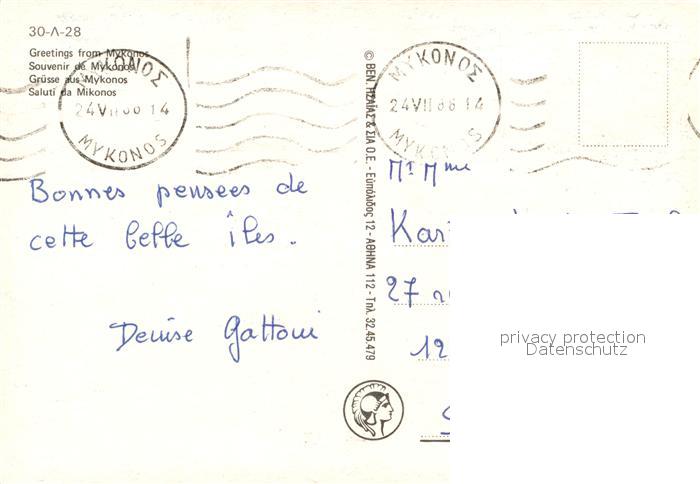 30-Λ-28
Greetings from Mykonos
Souvenir de Mykonos
Grüsse aus Mykonos
Saluti da Mikonos
ΜΥΚΟΝΟΣ
24 VII 86 14
MYKONOS
ΜΥΚΟΝΟΣ
24 VII 86 14
MYKONOS
Bonnes pensees de
cette belle îles.
Denise Gattoni
© ΒΕΝ. ΗΣΑΪΑΣ & ΣΙΑ Ο.Ε. - Ευπόλιδος 12 - ΑΘΗΝΑ 112 - Τηλ. 32.45.479
Mr Mme
Kari
27
12
privacy protection
Datenschutz